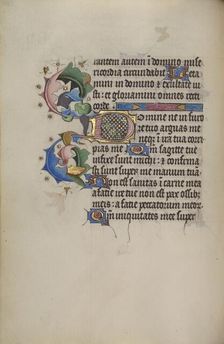 rantem autem in domino mise
ricordia circundabit Leta
mini in domino et exultate iu
sti: et gloriamini omnes recti
corde
Domine ne in furo
re tuo arguas me
neque in ira tua corri
pias me Quoniam sagitte tue
infixe sunt michi: et confirma
sti super me manum tuam
Non est sanitas in carne mea
a facie ire tue non est pax ossibus
meis: a facie peccatorum meorum
Quoniam iniquitates mee super